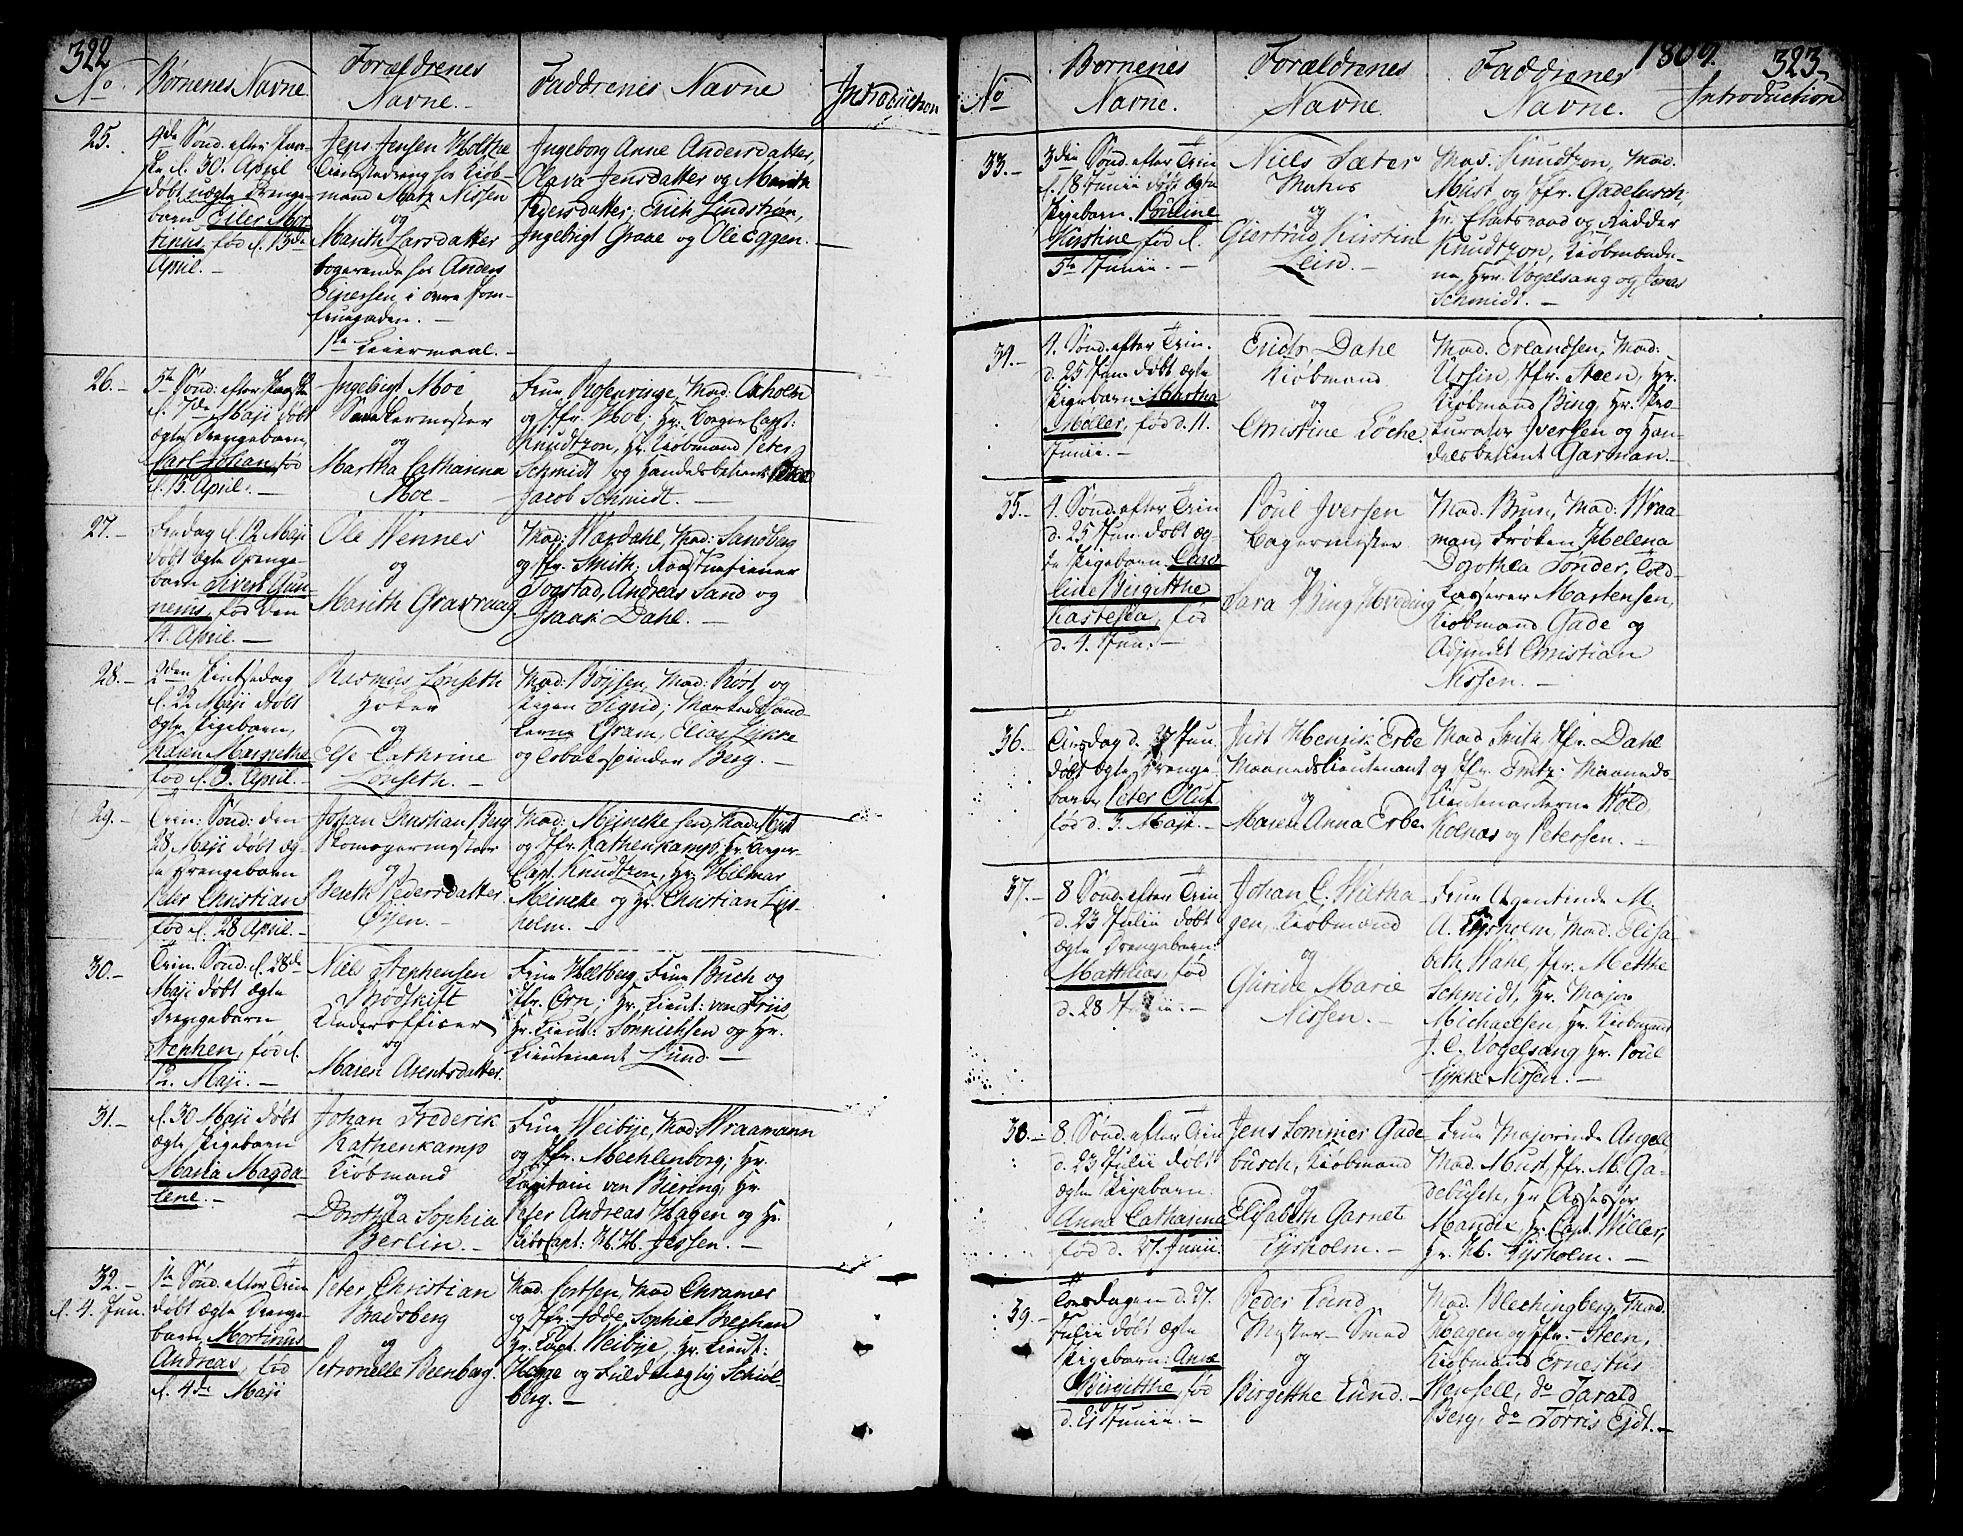 322
No. Børnenes Navne. Forældrenes Navne. Faddrenes Navne Introduction
25.
4de Sønd. efter Paa-
ske d. 30. April
døbt uægte Drenge-
barn Eiler Mor-
tinus, fød d. 13de
April. —
Jens Jensen Holthe
Tienestedreng hos Kiøb-
mand Matz Nissen
og
Marith Larsdatter
logerende hos Anders
Einersen, i øvre Jom-
fruegaden. —
1te Leiermaal. —
Ingeborg Anne Andersdatter,
Olava Jensdatter og Marith
Pedersdatter; Erich Lindstrøm,
Ingebrigt Graae og Ole Eggen. —
26. —
5te Sønd: efter Paaske
d. 7de Maji døbt
ægte Drengebarn,
Carl Johan, fød
d. 15 April. —
Ingebrigt Moe
Snedkermester
og
Martha Catharina
Moe —
Frue Rosenvinge, Mad. Oxholm
og Jfr. Moe; Hr. Borger Capt:
Knudtzon, Hr. Kiøbmand Peter
Schmidt og Handelsbetient Peter
Jacob Schmidt. —
27. —
Fredag d. 12 Maji
døbt ægte Drenge-
barn Sivert Gun-
nerus, fød den
12. April. —
Ole Wennes
og
Marith Gravraag
Mad: Wardahl, Mad: Sandberg
og Jfr. Smith; Raadstuetiener
Togstad, Andreas Sand og
Isaas: Dahl. —
28. —
2den Pintsedag
d. 22 Maji døbt
ægte Pigebarn,
Karen Margrethe
fød d. 3. April. —
Rasmus Lønseth
Høker
og
Else Cathrine
Lønseth. —
Mad: Bøysen, Mad: Rost, og
Pigen Sigrid; Mestersvend-
kerne Gram, Elias Lykke
og Tobakspinder Berg. —
29. —
Trin: Sønd: den
28 Maji døbt æg-
te Drengebarn
Peter Christian
fød d. 28 April. —
Johan Christian Berg
Skomagermester
og
Berith Pedersdatter
Øyen. —
Mad: Meincke sen, Mad: Must
og Jfr. Kathenkamp; Hr. Borger-
Capt. Knudtzon, Hr. Hilmar
Meincke og Hr. Christian Lys-
holm. —
30. —
Trin. Sønd. d. 28de
Maji døbt ægte
Drengebarn
Stephen, fød d.
12. Maji. —
Niels Stephensen
Brødskift
Underofficer
og
Maren Arentsdatter.
Frue Heltberg, Frue Buch og
Jfr. Orn; Hr. Lieut: von Friis
Hr. Lieut: Sonnichsen og Hr.
Lieutenant Lund. —
31. —
d. 30 Maji døbt
ægte Pigebarn
Maria Magda-
lene. —
Johan Frederik
Kathenkamp
Kiøbmand
og
Dorothea Sophia
Berlin. —
Frue Weibye, Mad: Wraamann
og Jfr. Mechlenborg; Hr.
Capitain von Biering, Hr.
Peter Andreas Hagen og Hr.
Skibscapt: H. H. Jessen. —
32. —
d. 4. Jun.
1te Sønd. efter Trin
døbt ægte Drenge-
barn, Mortinus
Andreas, fød
d. 4de Maji
Peter Christian
Bradsberg
og
Petronelle Beenberg.
Mad. Lortsen, Mad Chramer
og Jfr. Jodde, Sophie Brechand
Hr. Capt. Weibye, Hr. Lieut:
Hegge og Fuldmægtig Schiøl-
berg. —
1809. 323
No Børnenes Navne. Forældrenes Navne. Faddrenes Navne. Introduction
33. —
3die Sønd. efter Trin
d. 18 Junii døbt ægte
Pigebarn. Pouline
Kirstine, fød d.
5te Junii. —
Niels Sæter
Matros
og
Giertrud Kirstine
Lein. —
Mad: Knudtzon, Mad:
Must og Jfr. Gadebusch,
Hr. Etatsraad og Ridder
Knudtzon, Kiøbmænde-
ne, Hrr. Vogelsang og Jonas
Schmidt. —
34. —
4. Sønd. efter Trin.
d. 25 Jun døbt ægte
Pigebarn Martha
Møller, fød d. 11.
Junii. —
Erich Dahl
Kiøbmand
og
Christine Løche.
Mad. Erlandsen, Mad:
Ursin, Jfr. Steen, Hr.
Kiøbmand Bing, Hr. Pro-
curator Iversen og Han-
delsbetient Garman. —
35. —
4. Sønd. efter Trin
d. 25 Jun. døbt æg-
te Pigebarn Caro-
line Birgitthe
Kastesen, fød
d. 4. Jun. —
Poul Iversen
Bagermester
og
Sara Bing Hveding
Mad. Brun, Mad: Wraa-
man, Frøken Helena
Dorothea Tønder, Told-
kasserer Mortensen,
Kiøbmand Gade og
Adjunct Christian
Nissen. —
36. —
Tirsdag d. 27 Jun.
døbt ægte Drenge-
barn Peter Oluf
fød d. 3. Maji. —
Just Henrik Erbe
Maanedslieutenant
og
Maren Anna Erbe
Mad Smith, Jfr. Dahl
og Jfr. Fritz; Maaneds
Lieutenanterne Wold,
Kolnas og Petersen. —
37. —
8 Sønd. efter Trin
d. 23 Julii døbt
ægte Drengebarn:
Matthias, fød
d. 28 Junii. —
Johan C. Wietha-
gen, Kiøbmand
og
Guride Marie
Nissen. —
Frue Agentinde M.
A. Lysholm, Mad. Elisa-
beth Wahl, Jfr. Mette
Schmidt, Hr. Major
Michaelsen, Hr. Kiøbmand
J. C. Vogelsang Hr. Poul
Lykke Nissen. —
38. —
8. Sønd. efter Trin
d. 23 Julii døbt
ægte Pigebarn:
Anna Catharina
fød d. 27. Junii.
Jens Sommer Gade-
busch, Kiøbmand
og
Elisabeth Garnet
Lysholm. —
Frue Majorinde Angell,
Mad. Must, Jfr. M. Ga-
debusch, Hr Assessor
Mandix, Hr. Capt. Willer,
Hr. H. Lysholm. —
39. —
Torsdagen d. 27.
Julii døbt ægte
Pigebarn: Anne
Birgitthe, fød
d. 21 Junii. —
Peder Lund
Mester-Smed
og
Birgitthe Lund. —
Mad. Blechingberg, Mad.
Hagen og Jfr. Steen,
Kiøbmand Ernestus
Wensell, do Tarald
Berg, do Torris Eidt. —